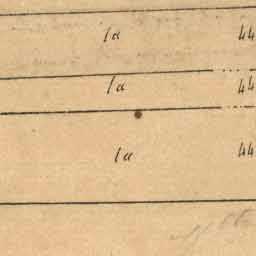 1a 44
1a 44
1a 44